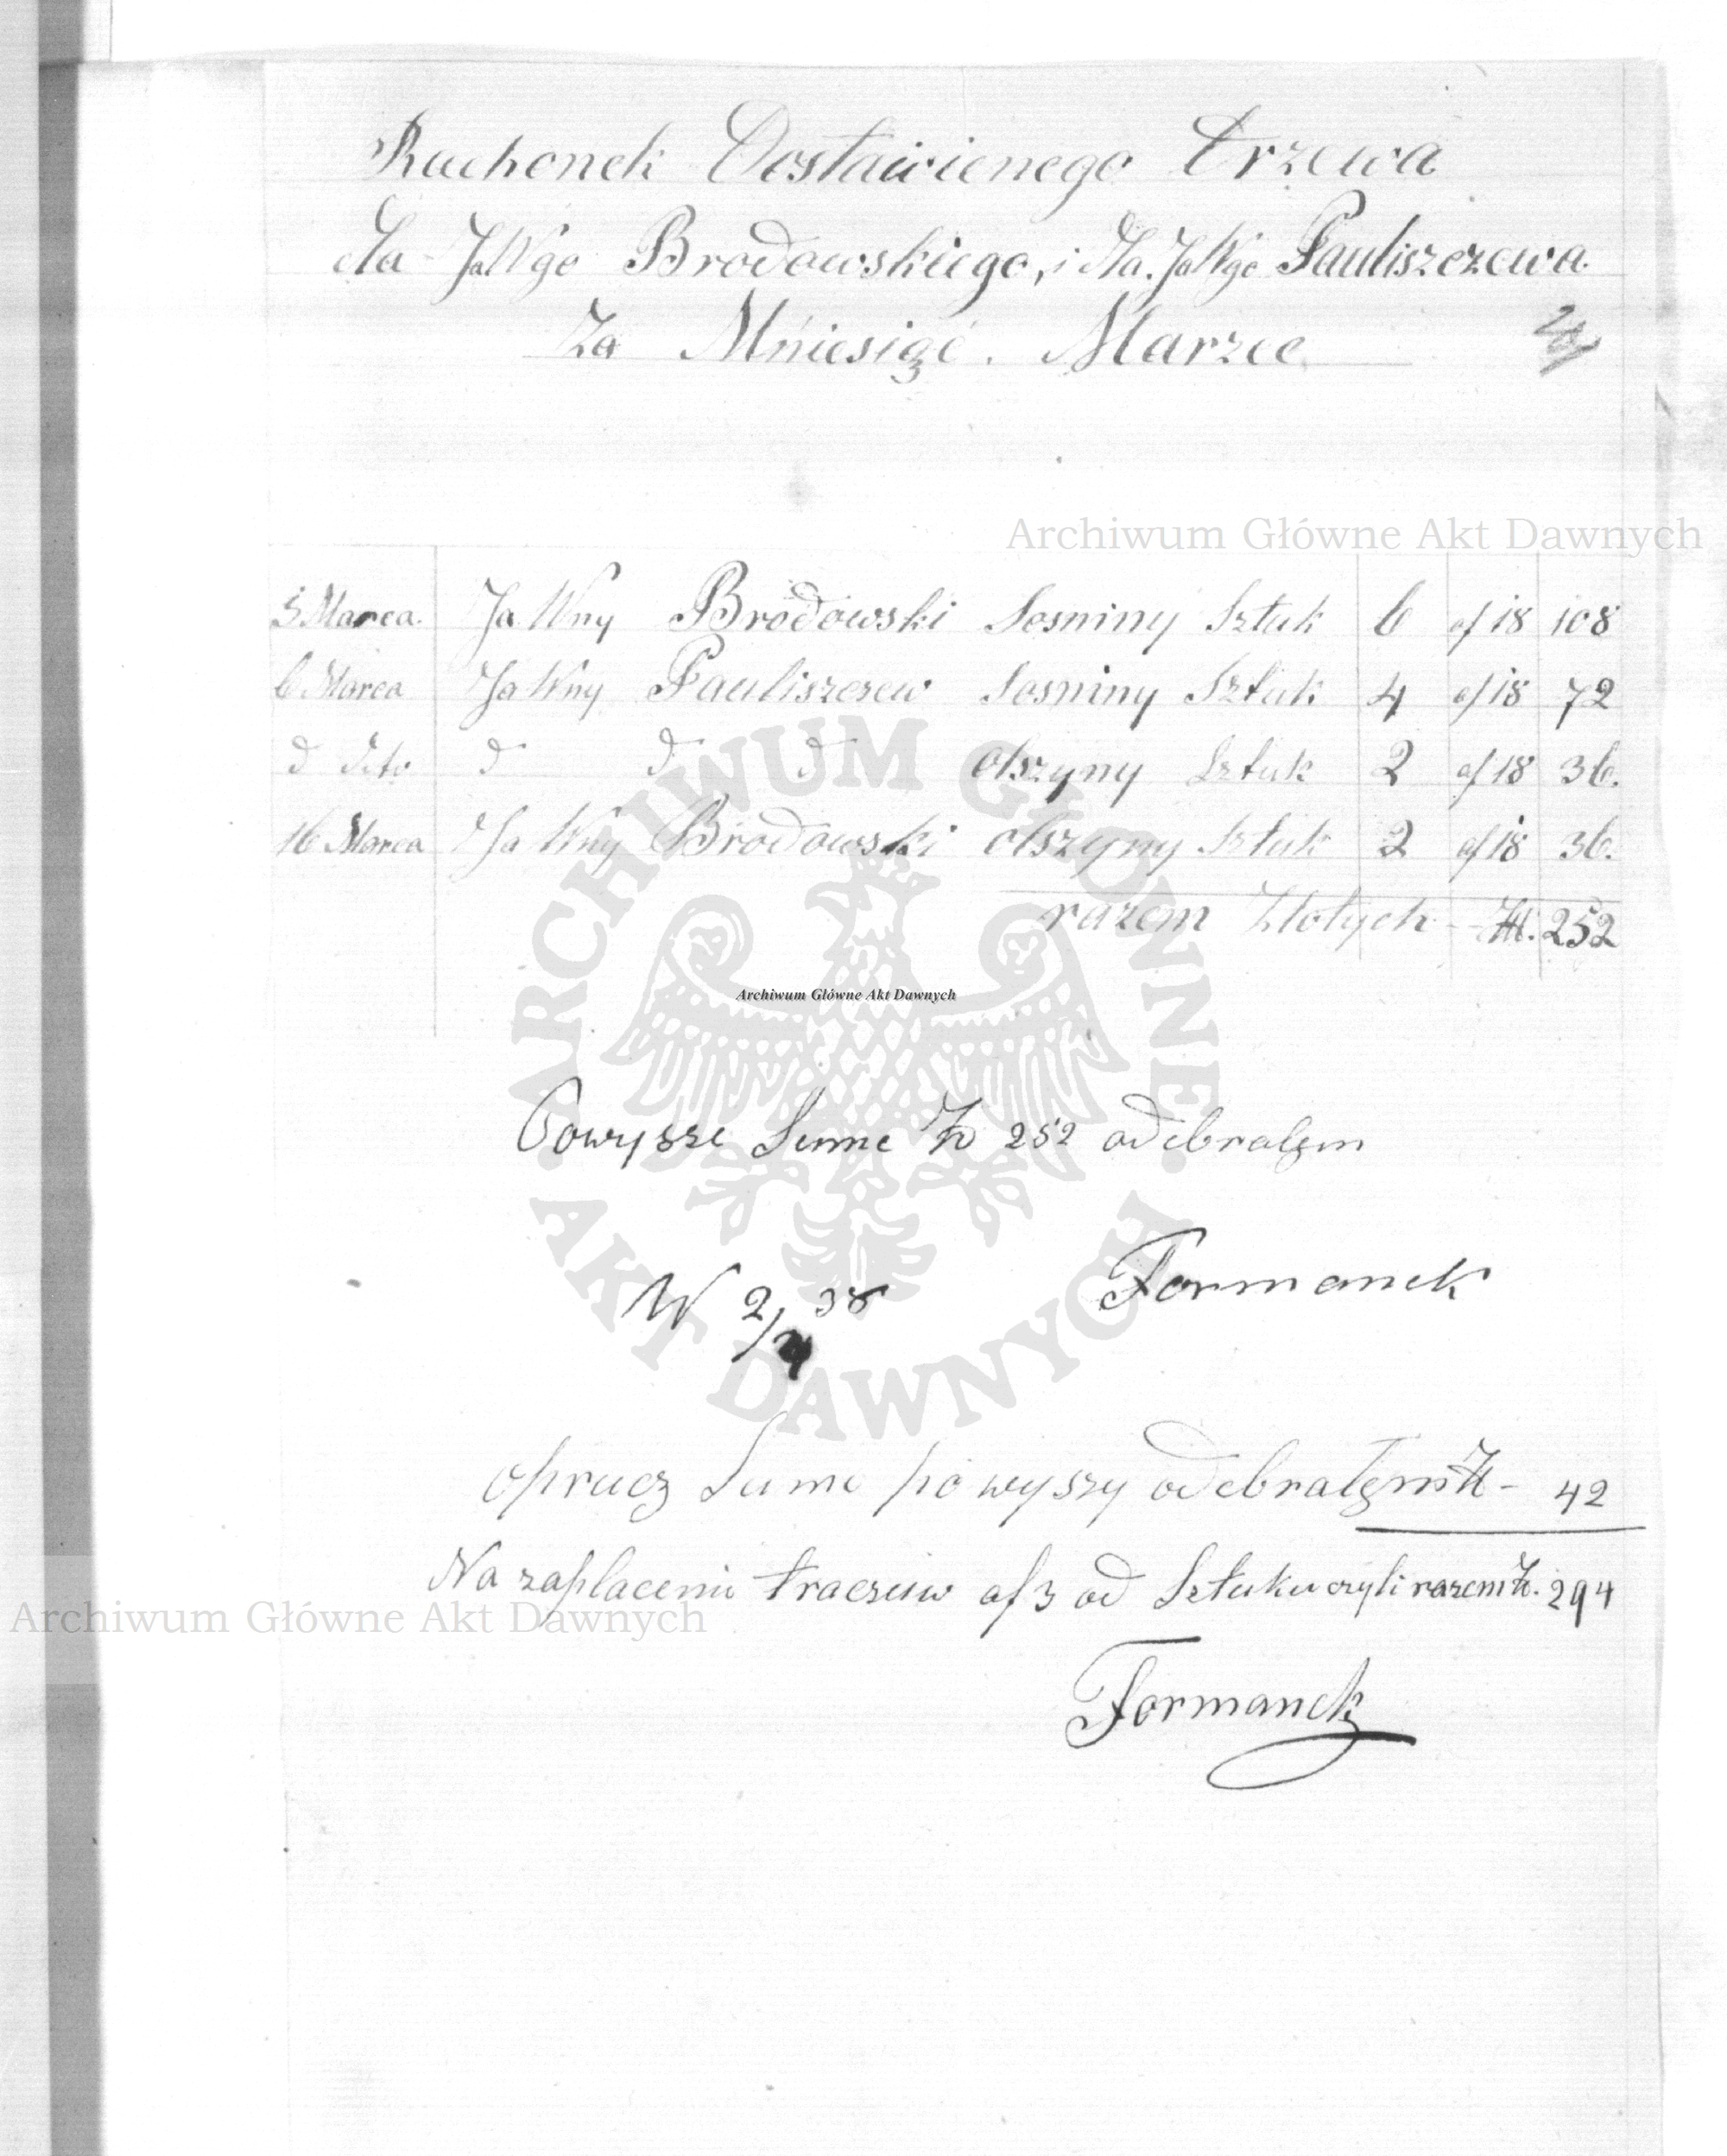 Ruchonek Dostawienego Drzewa
dla JaWgo Brodowskiego, i dla JaWgo Pauliszczewa
Za Mniesiąć. Marzec
Archiwum Główne Akt Dawnych
5 Marca. JaWny Brodowski Sosniny Sztuk 6 af 18 108
6 Marca JaWny Pauliszczew Sosniny Sztuk 4 af 18 72
d Dito d d d olszyny Sztuk 2 af 18 36.
16 Marca JaWny Brodowski olszyny Sztuk 2 af 18 36.
razem Złotych - Zł. 252
ARCHIWUM GŁÓWNE
Archiwum Główne Akt Dawnych
Powysze Sume Zł 252 odebralęm
Formanek
W 2/4 38
AKT DAWNYCH
oprucz Sume powyszy odebrałęm Zł - 42
Na zaplaceni traczuw af 3 od Sztuku czyli razem Zł. 294
Archiwum Główne Akt Dawnych
Formanek